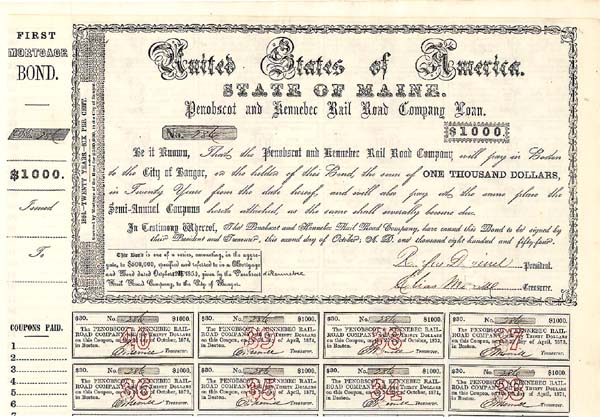 FIRST
MORTGAGE
BOND.
$1000.
Issued
To
COUPONS PAID.
1
2
3
4
5
6
1854.—TWENTY YEARS—SIX PER CENT.
United States of America.
STATE OF MAINE.
Penobscot and Kennebec Rail Road Company Loan.
No. 286 $1000.
Be it Known, That the Penobscot and Kennebec Rail Road Company will pay in Boston
to the City of Bangor, or the holder of this Bond, the sum of ONE THOUSAND DOLLARS,
in Twenty Years from the date hereof, and will also pay at the same place the
Semi-Annual Coupons hereto attached, as the same shall severally become due.
In Testimony Whereof, The Penobscot and Kennebec Rail Road Company, have caused this Bond to be signed by
their President and Treasurer, this second day of October, A. D. one thousand eight hundred and fifty-four.
This Bond is one of a series, amounting, in the aggre-
gate, to $600,000, specified and referred to in a Mortgage
and Bond dated 1853, given by the Penobscot & Kennebec
Rail Road Company, to the City of Bangor.
President.
Elias Merrill Treasurer.
$30. No. 286 $1000.
The PENOBSCOT & KENNEBEC RAIL-
ROAD COMPANY will pay THIRTY DOLLARS
on this Coupon, of October, 1874,
in Boston.
40
E Merrill TREASURER.
$30. No. 286 $1000.
The PENOBSCOT & KENNEBEC RAIL-
ROAD COMPANY will pay THIRTY DOLLARS
on this Coupon, of April, 1874,
in Boston.
39
E Merrill TREASURER.
$30. No. 286 $1000.
The PENOBSCOT & KENNEBEC RAIL-
ROAD COMPANY will pay THIRTY DOLLARS
on this Coupon, of October, 1873,
in Boston.
38
E Merrill TREASURER.
$30. No. 286 $1000.
The PENOBSCOT & KENNEBEC RAIL-
ROAD COMPANY will pay THIRTY DOLLARS
on this Coupon, of April, 1873,
in Boston.
37
E Merrill TREASURER.
$30. No. 286 $1000.
The PENOBSCOT & KENNEBEC RAIL-
ROAD COMPANY will pay THIRTY DOLLARS
on this Coupon, of October, 1872,
in Boston.
36
E Merrill TREASURER.
$30. No. 286 $1000.
The PENOBSCOT & KENNEBEC RAIL-
ROAD COMPANY will pay THIRTY DOLLARS
on this Coupon, of April, 1872,
in Boston.
35
E Merrill TREASURER.
$30. No. 286 $1000.
The PENOBSCOT & KENNEBEC RAIL-
ROAD COMPANY will pay THIRTY DOLLARS
on this Coupon, of October, 1871,
in Boston.
34
E Merrill TREASURER.
$30. No. 286 $1000.
The PENOBSCOT & KENNEBEC RAIL-
ROAD COMPANY will pay THIRTY DOLLARS
on this Coupon, of April, 1871,
in Boston.
33
E Merrill TREASURER.